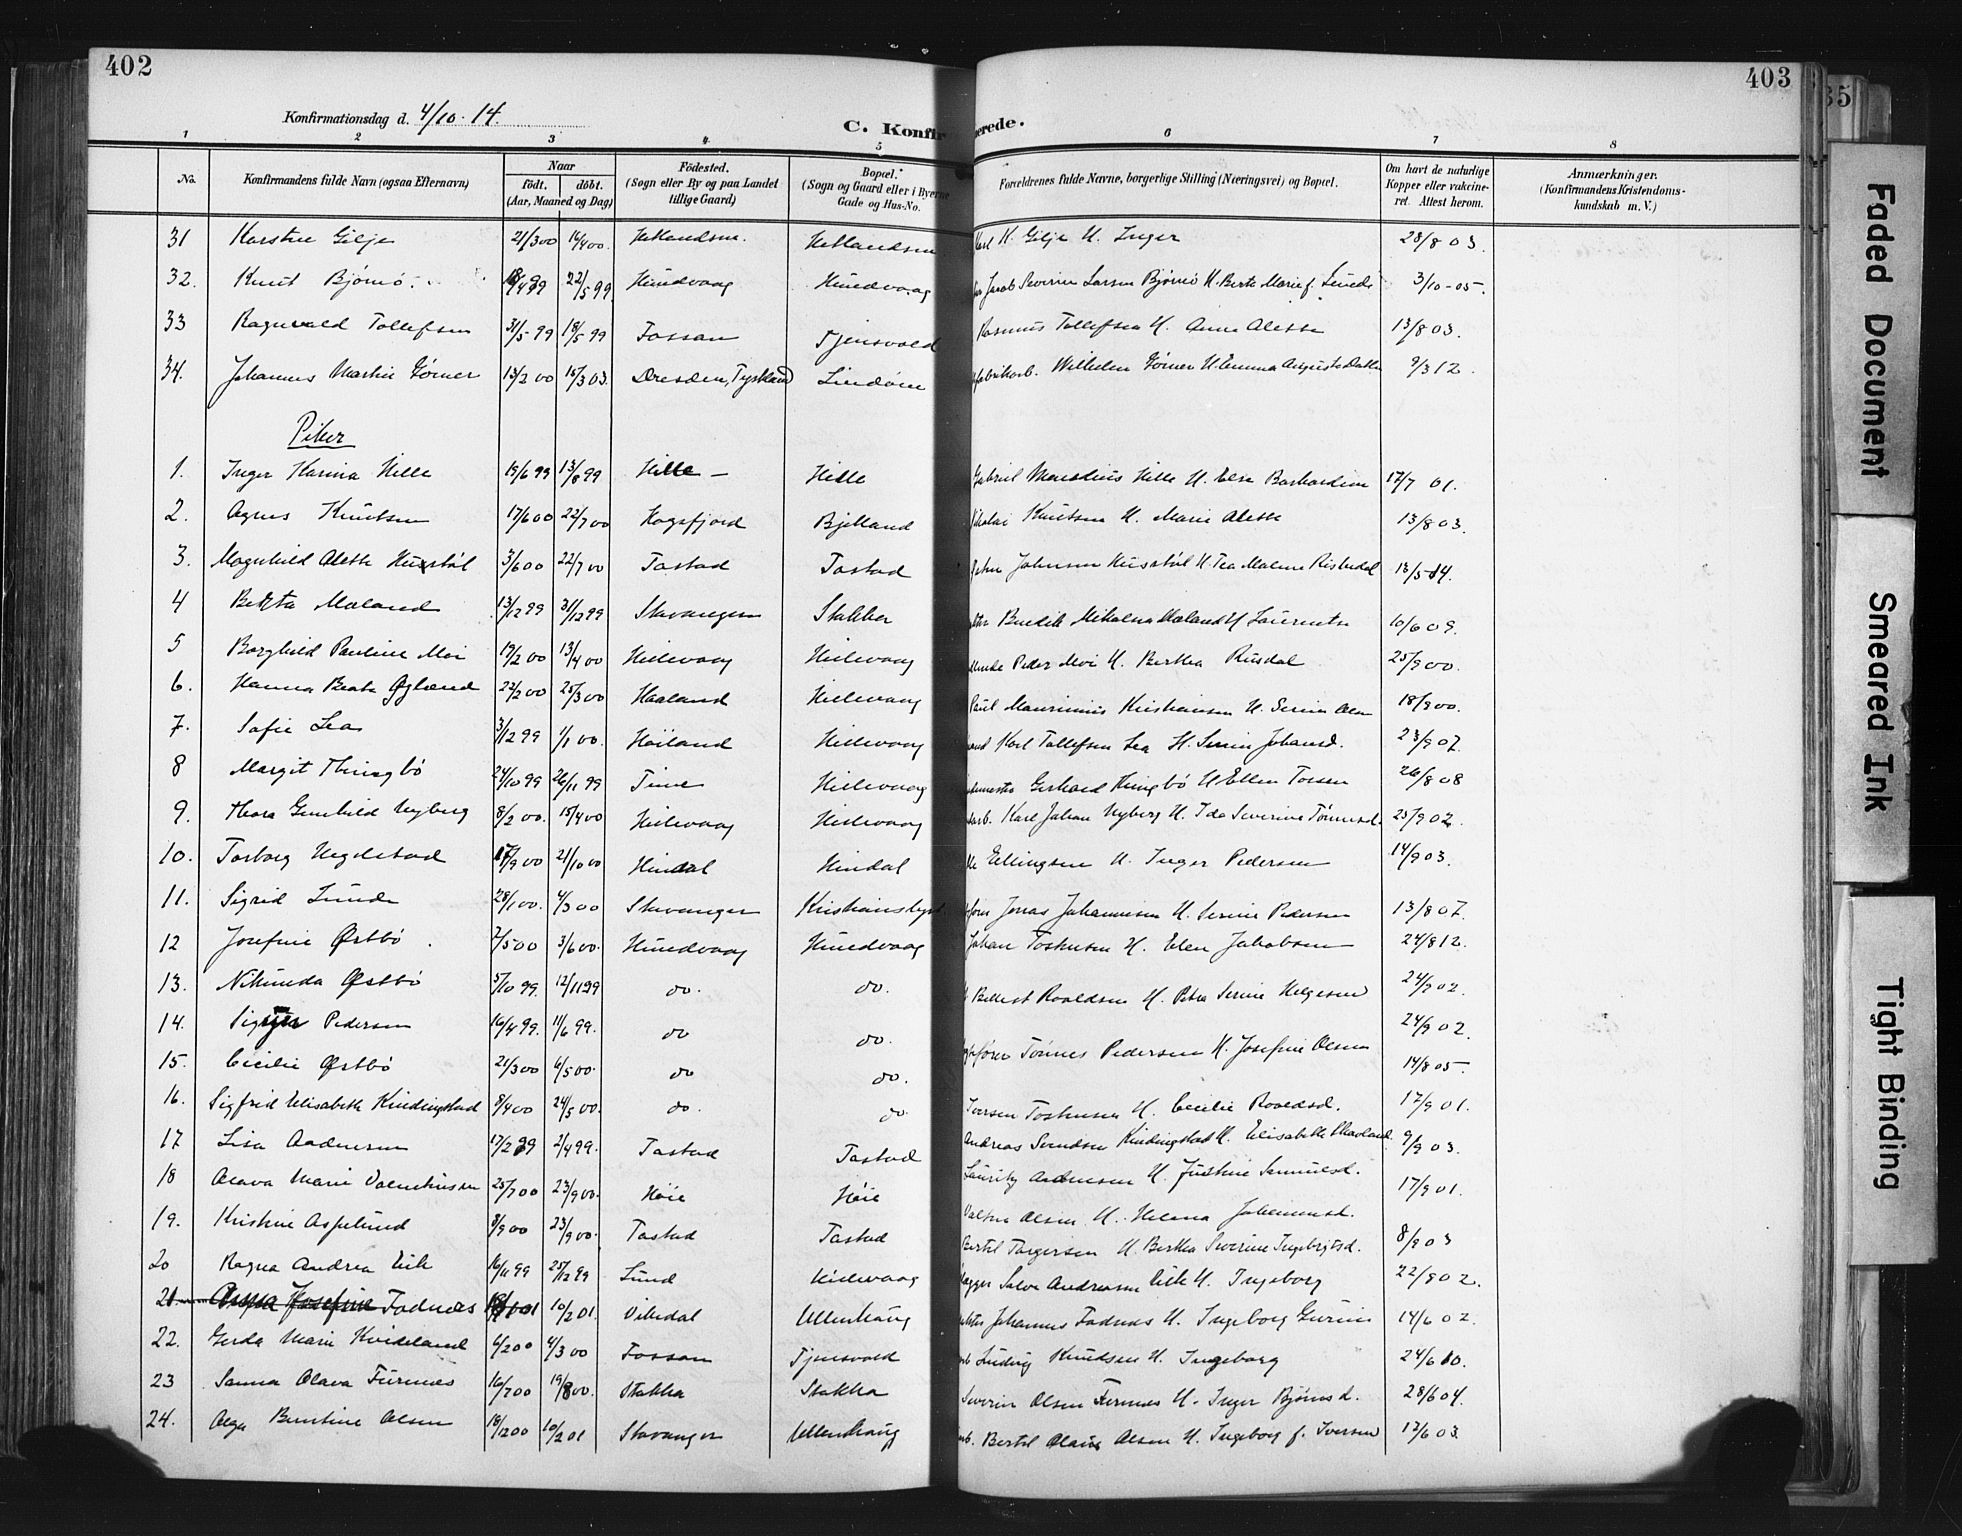 402
403
35
Konfirmationsdag d. 4/10. 14.
C. Konfir
erede.
1 2 3 4 5 6 7 8
No. Konfirmandens fulde Navn (ogsaa Efternavn) Naar födt. döbt. (Aar, Maaned og Dag) Födested. (Sogn eller By og paa Landet tillige Gaard) Bopæl. (Sogn og Gaard eller i Byerne Gade og Hus-No. Forældrenes fulde Navne, borgerlige Stilling (Næringsvei) og Bopæl. Om havt de naturlige Kopper eller vaccineret. Attest herom. Anmærkninger. (Konfirmandens Kristendomskundskab m. V.)
31 Karsten Gilje 21/3 00 16/4 00. Hetlandsm. Hetlandsm H. Gilje H. Inger 28/8 03.
32. Knut Bjørnø 22/5 99 Hundvaag Hundvaag Jacob Severin Larsen Bjørnø H. Berte Marie f. Lunde 3/10 - 05.
33 Ragnvald Tollefsen 31/5 99 18/5 99 Fossan Tjensvold Rasmus Tollefsen H. Anna Alette 13/8 03.
34. Johannes Martin Görner 13/2 00 15/3 03. Dresden, Tyskland Lindøen fabrikarb. Wilhelm Görner H. Emma Auguste 9/3 12.
Piker
1. Inger Karina Hille 19/6 99 13/8 99 Hille - Hille Gabriel Hille H. Elsa 17/7 01.
2. Agnes Knutsen 17/6 00 22/7 00 Høgsfjord Bjelland Nikolai Knutsen H. Marie Alette 13/8 03.
3. Magnhild Alette Husstøl 3/6 00 22/7 00 Tastad Tastad Peder Johnsen Husstøl H. Tea Malene Risdal 13/5 14.
4 Berta Maland 13/12 99 31/12 99 Stavanger Stokka Mæland H Laurentse 10/6 09.
5 Borghild Pauline Moi 19/2 00 13/4 00 Hillevaag Hillevaag Peder Moi H. Bertha Rusdal 25/9 00.
6. Hanna Beate Øglænd 22/2 00 25/3 00 Haaland Hillevaag Paul Mauritius Kristiansen H. Serine Olsen 18/9 00.
7. Sofie Lea 3/12 99 1/1 00. Høiland Hillevaag Karl Tollefsen Lea H. Serine Johansd. 23/9 07.
8 Margit Thingbø 24/10 99 26/11 99 Time Hillevaag Gerhard Thingbø H Ellen Tossen 26/8 08
9. Thora Gunhild Nyberg 8/2 00. 15/4 00 Hillevaag Hillevaag arb. Karl Johan Nyberg H. Ida Severine Tønnesd. 23/9 02.
10. Torborg Hegelstad 17/9 00 21/10 00 Hindal Hindal Ellingsen H. Inger Pedersen 14/9 03.
11. Sigrid Lunde 28/1 00. 4/3 00 Stavanger Kristianslyst Jonas Johannesen H. Serine Pedersen 13/8 07.
12 Josefine Østbø. 2/5 00 3/6 00. Hundvaag Hundvaag Johan Torkelsen H. Elen Jakobsen 24/8 12.
13. Nikunda Østbø 5/10 99. 12/11 99 do. do. Roaldsen H. Petra Serine Helgesen 24/9 02.
14. Pedersen 16/4 99. 11/6 99. do do. fører Tönnes Pedersen H. Josefine Olsen 24/9 02.
15. Cecilie Østbø 21/3 00 6/5 00. do do. Iversen Torkelsen H. Cecilie Roaldsd. 14/8 05.
16. Sigfrid Elisabeth Kindingstad 8/4 00 24/5 00. do. do Andreas Svendsen Kindingstad H. Elisabeth 17/9 01.
17 Lisa Andersen 17/2 99 2/4 99. Tastad Tastad Lauritz Andersen H. Justine Samuelsd. 9/9 03.
18 Olava Marie Valentinsen 25/7 00 23/9 00. Høie Høie Olsen H. Helena Johannesd. 17/9 01.
19. Kristine Aspelund 8/9 00 23/9 00. Tastad Tastad Bertel Torgersen H. Bertha Severine Ingebrigtsd. 8/9 03
20 Ragna Andrea Eik 16/11 99 25/12 99 Lund Hillevaag Salve Andreasen Eik H. Ingeborg 22/9 02.
21. Josefine Fodnæs 10/2 01. Vikedal Ullenhaug Johannes Fodnæs H. Ingeborg Gurine 14/6 02.
22. Gerda Marie Kvideland 4/2 00 4/3 00 Fossan Tjensvold Ludvig Knudsen H. Ingeborg 24/6 10.
23 Sanna Olava Furenes 16/7 00 19/8 00. Stokka Stokka Severin Olsen Furenes H. Inger Bjørnsd. 28/6 04.
24. Olga Berntine Olsen 18/12 00 10/2 01 Stavanger Ullenhaug arb. Bertel Olaus Olsen H. Ingeborg f. Iversen 17/6 03.
Faded Document
Smeared Ink
Tight Binding